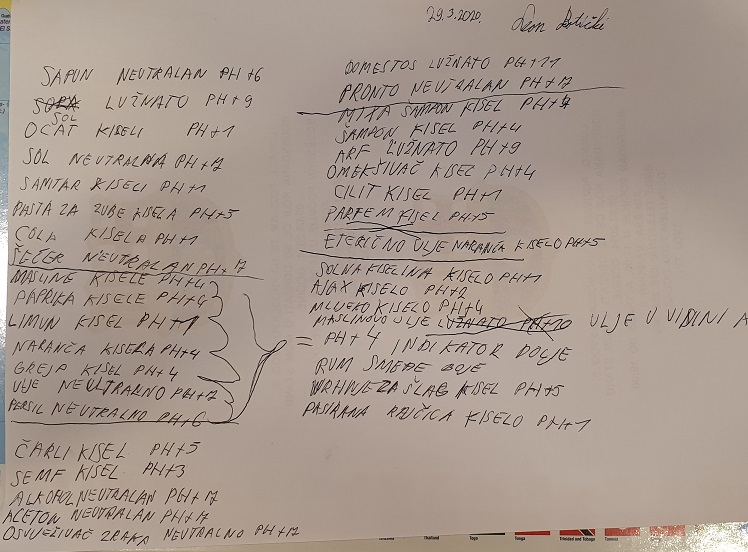 29.3.2020.
SAPUN NEUTRALAN PH+6
SOL LUŽNATO PH+9
OCAT KISELI PH+1
SOL NEUTRALNA PH+7
SANITAR KISELI PH+1
PASTA ZA ZUBE KISELA PH+5
COLA KISELA PH+1
ŠEĆER NEUTRALAN PH+7
MASLINE KISELE PH+4
PAPRIKA KISELE PH+4
LIMUN KISEL PH+1
NARANČA KISERA PH+4
GREJP KISEL PH+4
ULJE NEUTRALNO PH+7
PERSIL NEUTRALNO PH+6
ČARLI KISEL PH+5
SEMF KISEL PH+3
ALKOHOL NEUTRALAN PH+7
ACETON NEUTRALAN PH+7
OSVJEŽIVAČ ZRAKA NEUTRALNO PH+7
DOMESTOS LUŽNATO PH+11
PRONTO NEUTRALAN PH+7
ŠAMPON KISEL PH+4
ŠAMPON KISEL PH+4
ARF LUŽNATO PH+9
OMEKŠIVAČ KISEL PH+4
CILIT KISEL PH+1
PARFEM KISEL PH+5
ETERIČNO ULJE NARANČA KISELO PH+5
SOLNA KISELINA KISELO PH+1
AJAX KISELO PH+2
MLIJEKO KISELO PH+4
MASLINOVO ULJE LUŽNATO PH+10 ULJE U VIDINI A
= PH+4 INDIKATOR DOLJE
RUM SMEĐE BOJE
VRHNJE ZA ŠLAG KISEL PH+5
PASIRANA RAJČICA KISELO PH+1
Thailand
Togo
Tonga
Trinidad and Tobago